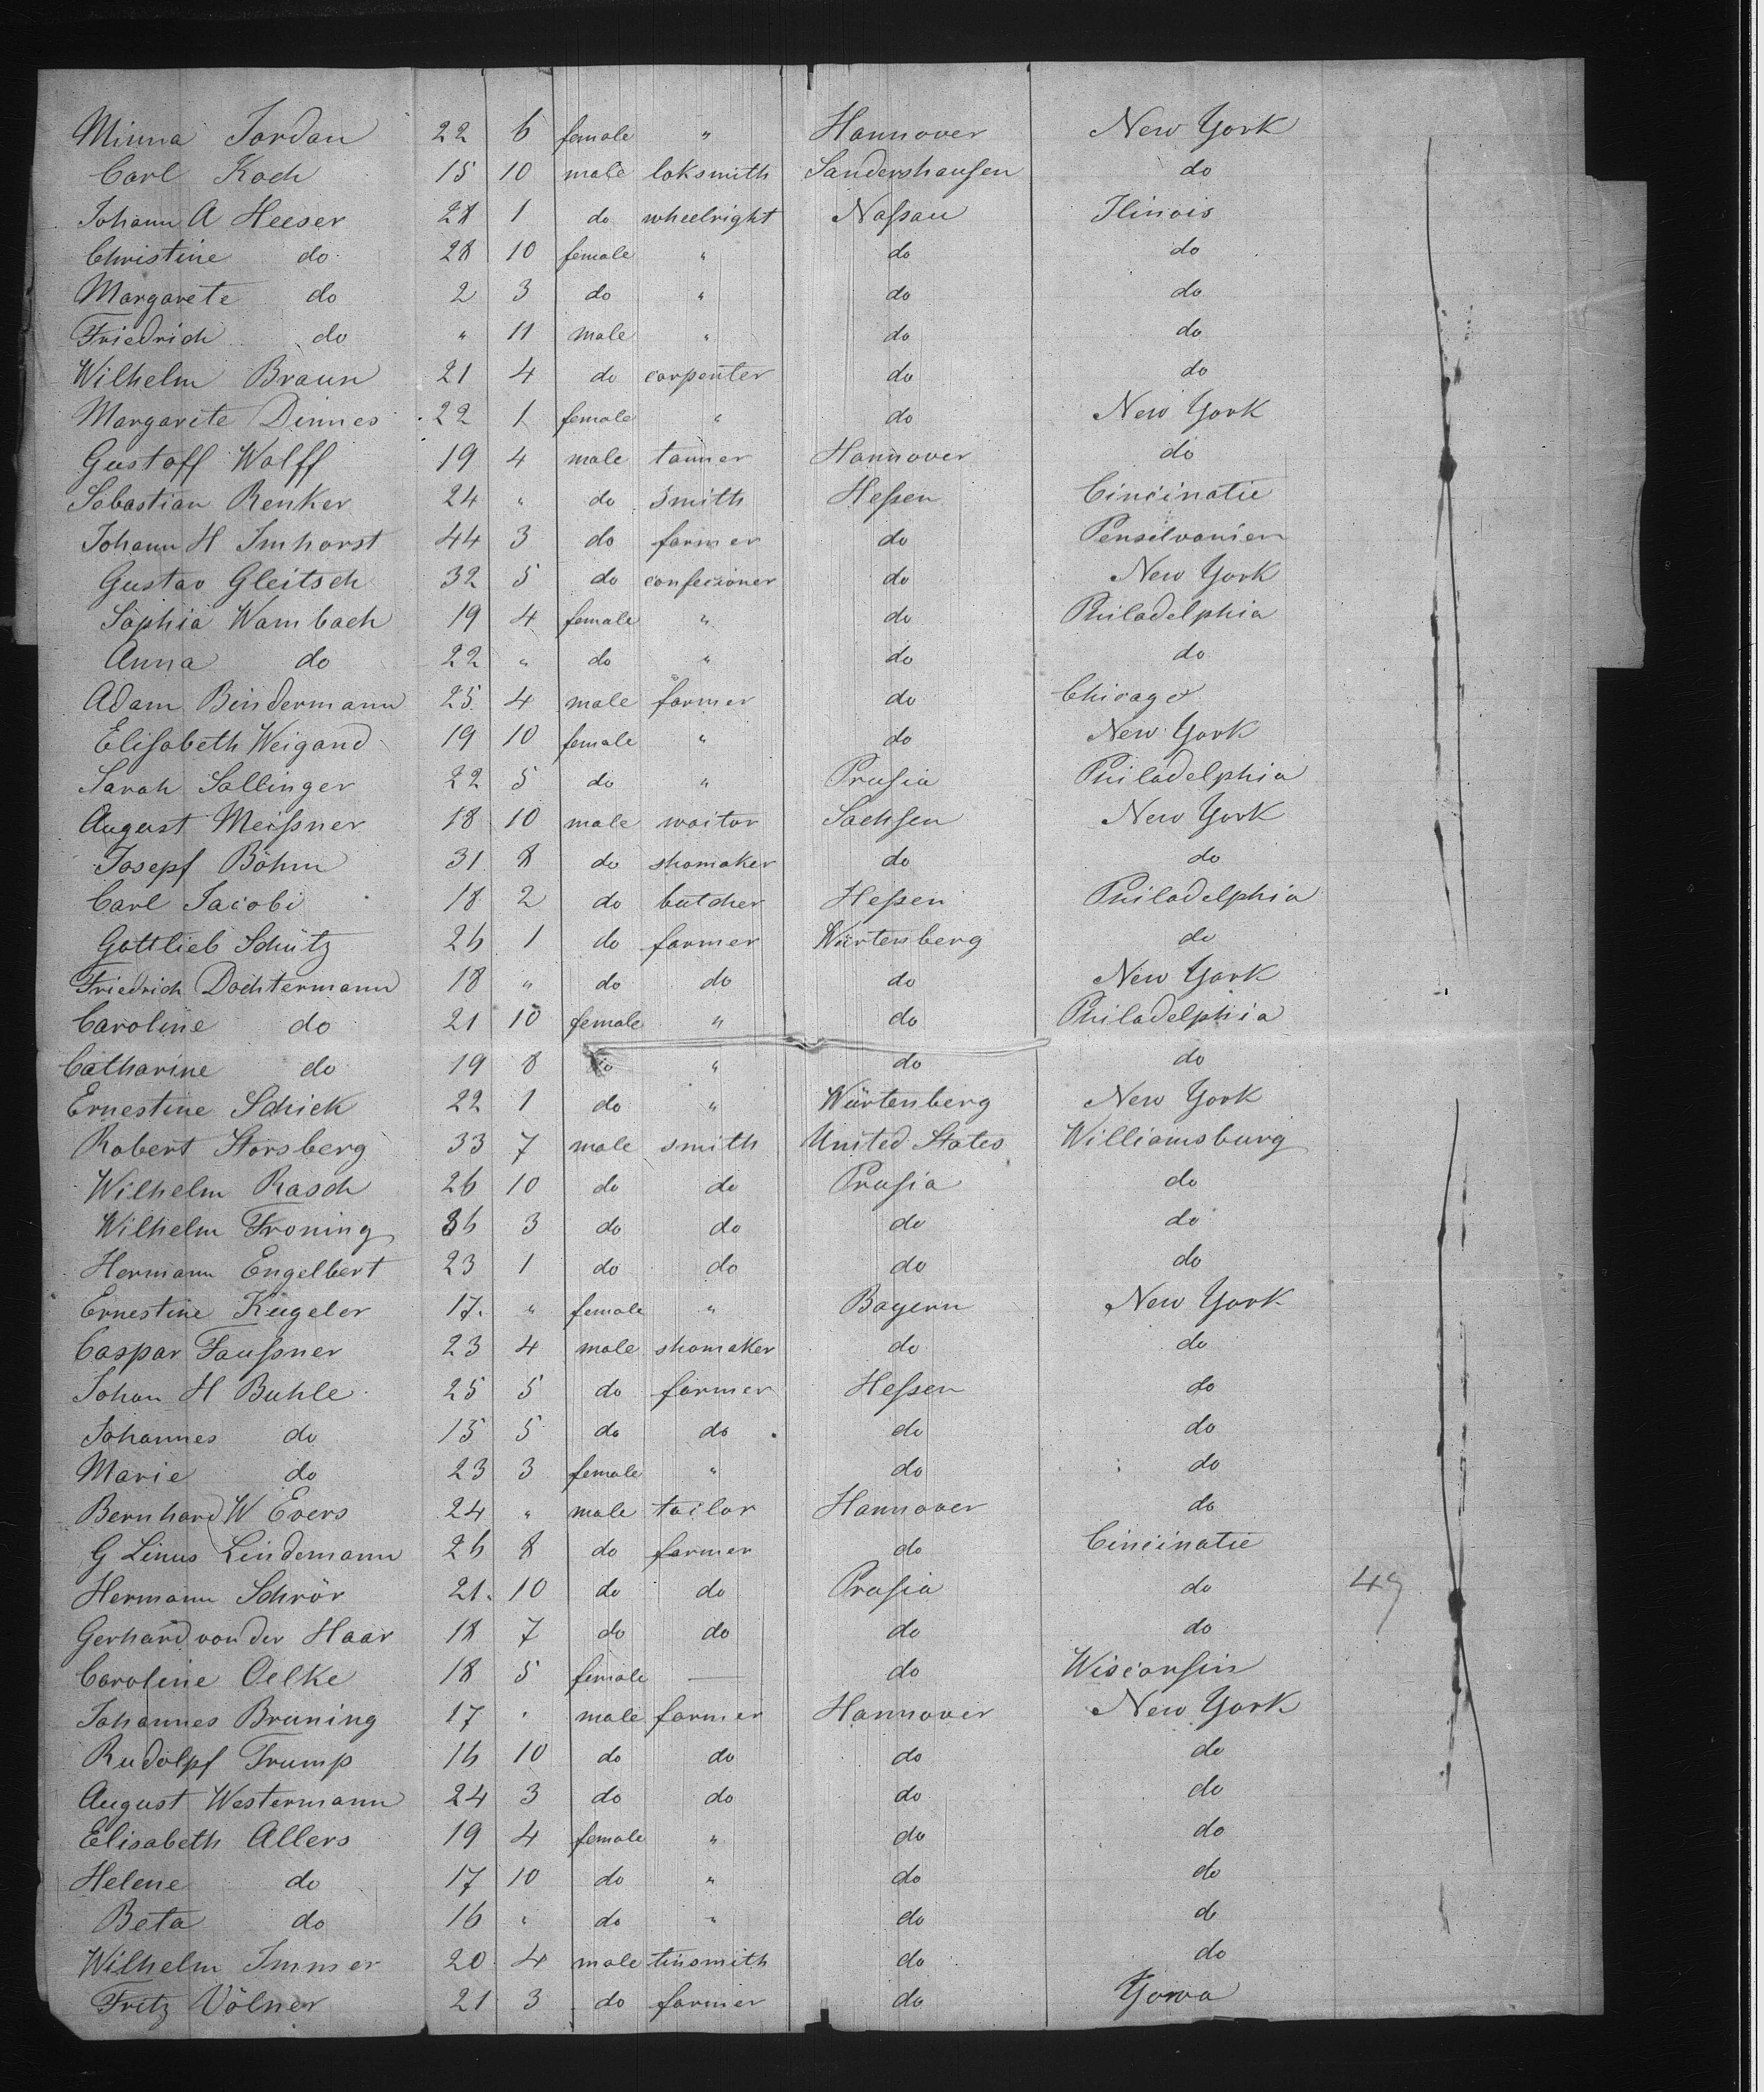 Minna Jordan 22 6 female " Hannover New York
Carl Koch 15 10 male loksmith Sandershausen do
Johann A Heeser 28 1 do wheelright Nassau Ilinois
Christine do 28 10 female " do do
Margarete do 2 3 do " do do
Friedrich do " 11 male " do do
Wilhelm Braun 21 4 do carpenter do do
Margarete Dinnes 22 1 female " do New York
Gustoff Wolff 19 4 male tanner Hannover do
Sebastian Renker 24 " do smith Hessen Cincinatie
Johann H Imhorst 44 3 do farmer do Pensilvanien
Gustav Gleitsch 32 5 do confecioner do New York
Sophia Wambach 19 4 female " do Philadelphia
Anna do 22 " do " do do
Adam Bindermann 25 4 male farmer do Chicago
Elisabeth Weigand 19 10 female " do New York
Sarah Sallinger 22 5 do " Prusia Philadelphia
August Meissner 18 10 male waitor Sachsen New York
Josepf Böhm 31 8 do shomaker do do
Carl Jacobi 18 2 do butcher Hessen Philadelphia
Gottlieb Schütz 26 1 do farmer Würtenberg do
Friedrich Dochtermann 18 " do do do New York
Caroline do 21 10 female " do Philadelphia
Catharine do 19 8 do " do do
Ernestine Schick 22 1 do " Würtenberg New York
Robert Storsberg 33 7 male smith United States Williamsburg
Wilhelm Rasch 26 10 do do Prusia do
Wilhelm Froning 36 3 do do do do
Hermann Engelbert 23 1 do do do do
Ernestine Kugeler 17 " female " Bayern New York
Caspar Faussner 23 4 male shomaker do do
Johan H Buhle 25 5 do farmer Hessen do
Johannes do 15 5 do do do do
Marie do 23 3 female " do do
Bernhard W Evers 24 " male tailor Hannover do
G Linus Lindemann 26 8 do farmer do Cincinatie
Hermann Schrör 21 10 do do Prusia do 49
Gerhard von der Haar 18 7 do do do do
Caroline Oelke 18 5 female — do Wisconsin
Johannes Bruning 17 " male farmer Hannover New York
Rudolpf Trump 16 10 do do do do
August Westermann 24 3 do do do do
Elisabeth Allers 19 4 female " do do
Helene do 17 10 do " do do
Beta do 16 " do " do do
Wilhelm Immer 20 4 male tinsmith do do
Fritz Völner 21 3 do farmer do Yowa